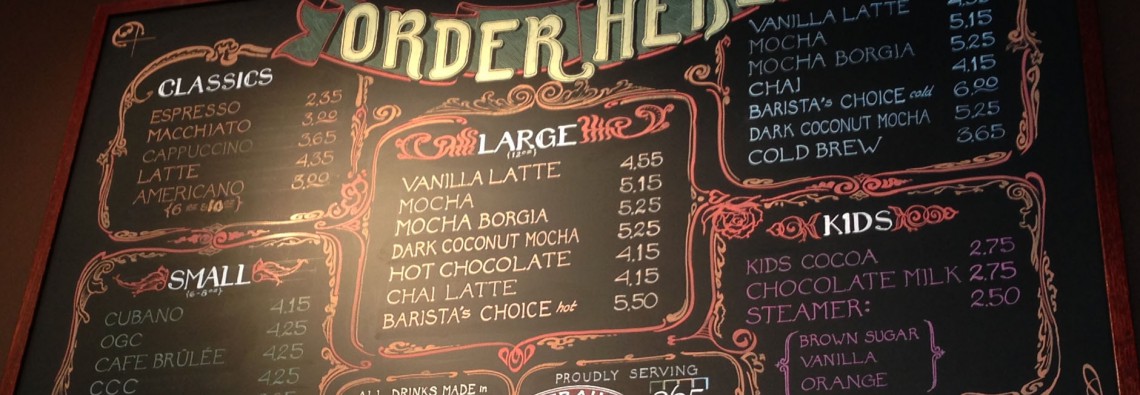 ORDER HERE
CLASSICS
ESPRESSO 2.35
MACCHIATO 3.00
CAPPUCCINO 3.65
LATTE 4.35
AMERICANO 3.00
SMALL
CUBANO 4.15
OGC 4.25
CAFE BRÛLÉE 4.25
CCC 4.25
LARGE
VANILLA LATTE 4.55
MOCHA 5.15
MOCHA BORGIA 5.25
DARK COCONUT MOCHA 5.25
HOT CHOCOLATE 4.15
CHAI LATTE 4.15
BARISTA's CHOICE hot 5.50
ALL DRINKS MADE in
PROUDLY SERVING
VANILLA LATTE
MOCHA 5.15
MOCHA BORGIA 5.25
CHAI 4.15
BARISTA's CHOICE cold 6.00
DARK COCONUT MOCHA 5.25
COLD BREW 3.65
KIDS
KIDS COCOA 2.75
CHOCOLATE MILK 2.75
STEAMER: 2.50
BROWN SUGAR
VANILLA
ORANGE